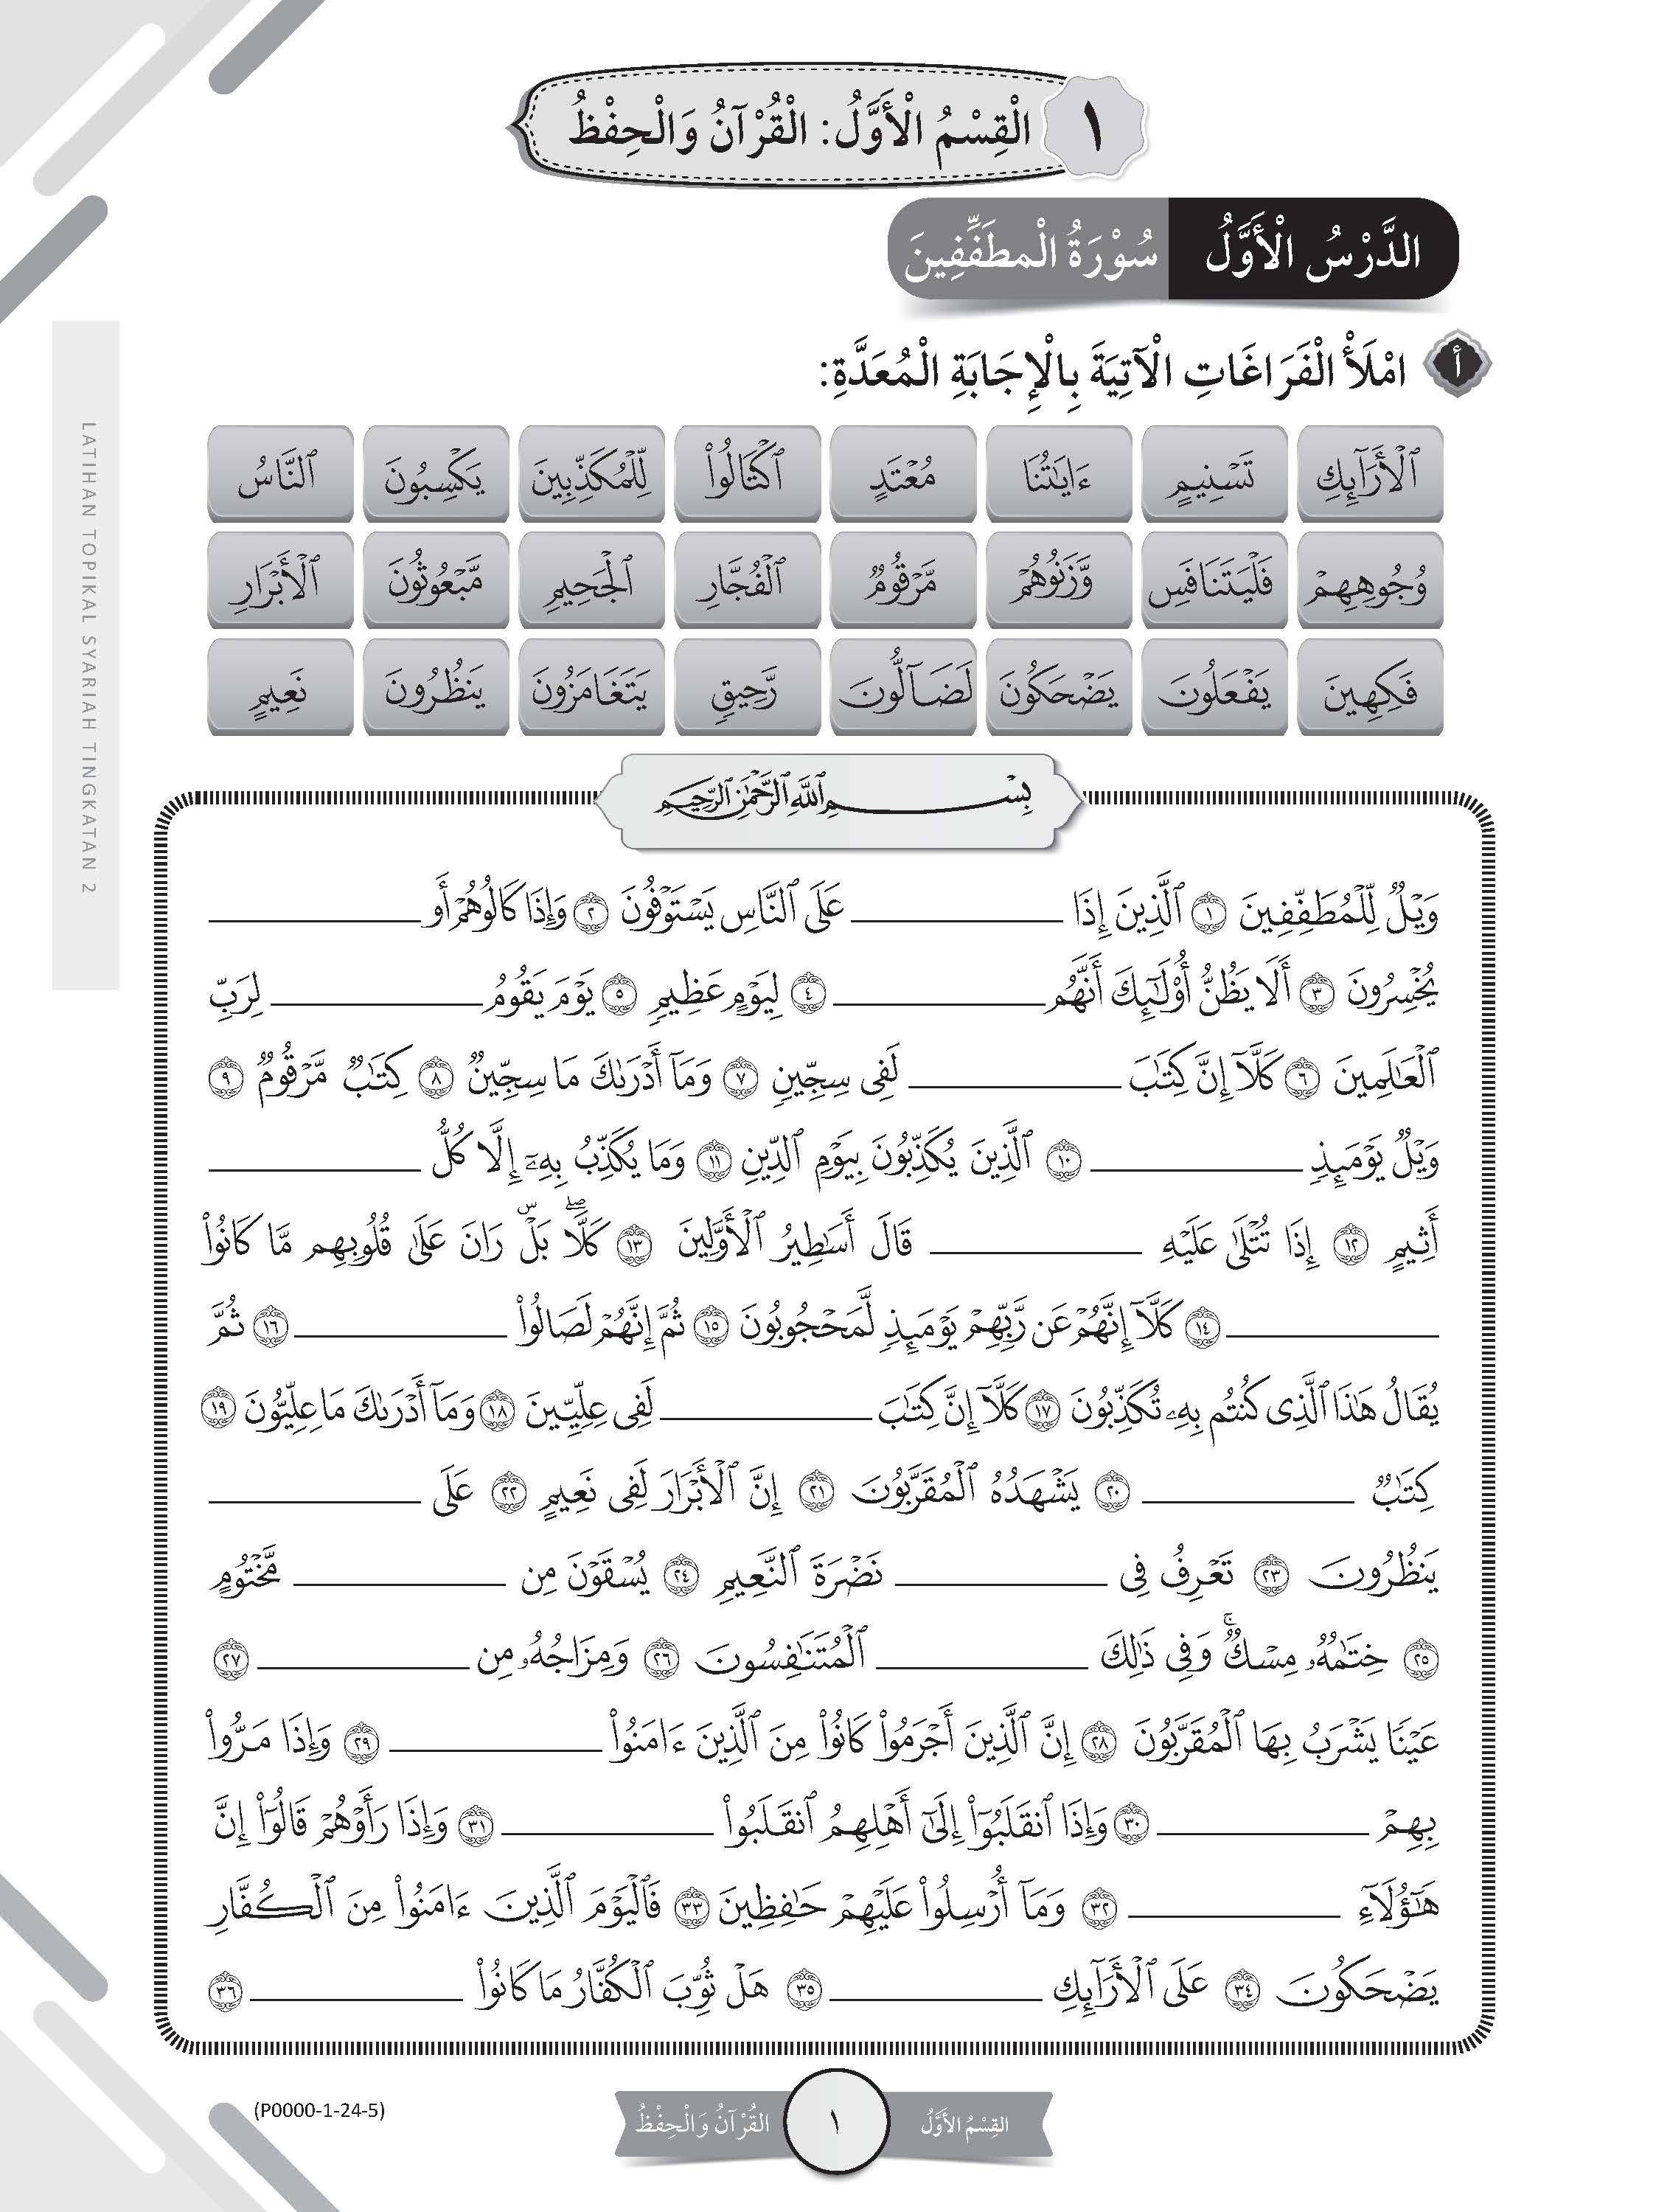 ١
الْقِسْمُ الْأَوَّلُ: الْقُرْآنُ وَالْحِفْظُ
الدَّرْسُ الْأَوَّلُ سُوْرَةُ الْمطَفِّفِينَ
أ امْلَأْ الْفَرَاغَاتِ الْآتِيَةَ بِالْإِجَابَةِ الْمُعَدَّةِ:
ٱلْأَرَآئِكِ تَسْنِيمٍ ءَايَٰتُنَا مُعْتَدٍ ٱكْتَالُوا۟ لِّلْمُكَذِّبِينَ يَكْسِبُونَ ٱلنَّاسُ
وُجُوهِهِمْ فَلْيَتَنَافَسِ وَّزَنُوهُمْ مَّرْقُومٌ ٱلْفُجَّارِ ٱلْجَحِيمِ مَّبْعُوثُونَ ٱلْأَبْرَارِ
فَكِهِينَ يَفْعَلُونَ يَضْحَكُونَ لَضَآلُّونَ رَّحِيقٍ يَتَغَامَزُونَ يَنظُرُونَ نَعِيمٍ
بِسْمِ ٱللَّهِ ٱلرَّحْمَٰنِ ٱلرَّحِيمِ
وَيْلٌ لِّلْمُطَفِّفِينَ ١ ٱلَّذِينَ إِذَا ________ عَلَى ٱلنَّاسِ يَسْتَوْفُونَ ٢ وَإِذَا كَالُوهُمْ أَو ________
يُخْسِرُونَ ٣ أَلَا يَظُنُّ أُو۟لَٰٓئِكَ أَنَّهُم ________ ٤ لِيَوْمٍ عَظِيمٍ ٥ يَوْمَ يَقُومُ ________ لِرَبِّ
ٱلْعَٰلَمِينَ ٦ كَلَّآ إِنَّ كِتَٰبَ ________ لَفِى سِجِّينٍ ٧ وَمَآ أَدْرَىٰكَ مَا سِجِّينٌ ٨ كِتَٰبٌ مَّرْقُومٌ ٩
وَيْلٌ يَوْمَئِذٍ ________ ١٠ ٱلَّذِينَ يُكَذِّبُونَ بِيَوْمِ ٱلدِّينِ ١١ وَمَا يُكَذِّبُ بِهِۦٓ إِلَّا كُلُّ ________
أَثِيمٍ ١٢ إِذَا تُتْلَىٰ عَلَيْهِ ________ قَالَ أَسَٰطِيرُ ٱلْأَوَّلِينَ ١٣ كَلَّا ۖ بَلْ ۜ رَانَ عَلَىٰ قُلُوبِهِم مَّا كَانُوا۟
________ ١٤ كَلَّآ إِنَّهُمْ عَن رَّبِّهِمْ يَوْمَئِذٍ لَّمَحْجُوبُونَ ١٥ ثُمَّ إِنَّهُمْ لَصَالُوا۟ ________ ١٦ ثُمَّ
يُقَالُ هَٰذَا ٱلَّذِى كُنتُم بِهِۦ تُكَذِّبُونَ ١٧ كَلَّآ إِنَّ كِتَٰبَ ________ لَفِى عِلِّيِّينَ ١٨ وَمَآ أَدْرَىٰكَ مَا عِلِّيُّونَ ١٩
كِتَٰبٌ ________ ٢٠ يَشْهَدُهُ ٱلْمُقَرَّبُونَ ٢١ إِنَّ ٱلْأَبْرَارَ لَفِى نَعِيمٍ ٢٢ عَلَى ________
يَنظُرُونَ ٢٣ تَعْرِفُ فِى ________ نَضْرَةَ ٱلنَّعِيمِ ٢٤ يُسْقَوْنَ مِن ________ مَّخْتُومٍ
٢٥ خِتَٰمُهُۥ مِسْكٌ ۚ وَفِى ذَٰلِكَ ________ ٱلْمُتَنَٰفِسُونَ ٢٦ وَمِزَاجُهُۥ مِن ________ ٢٧
عَيْنًا يَشْرَبُ بِهَا ٱلْمُقَرَّبُونَ ٢٨ إِنَّ ٱلَّذِينَ أَجْرَمُوا۟ كَانُوا۟ مِنَ ٱلَّذِينَ ءَامَنُوا۟ ________ ٢٩ وَإِذَا مَرُّوا۟
بِهِمْ ________ ٣٠ وَإِذَا ٱنقَلَبُوٓا۟ إِلَىٰٓ أَهْلِهِمُ ٱنقَلَبُوا۟ ________ ٣١ وَإِذَا رَأَوْهُمْ قَالُوٓا۟ إِنَّ
هَٰٓؤُلَآءِ ________ ٣٢ وَمَآ أُرْسِلُوا۟ عَلَيْهِمْ حَٰفِظِينَ ٣٣ فَٱلْيَوْمَ ٱلَّذِينَ ءَامَنُوا۟ مِنَ ٱلْكُفَّارِ
يَضْحَكُونَ ٣٤ عَلَى ٱلْأَرَآئِكِ ________ ٣٥ هَلْ ثُوِّبَ ٱلْكُفَّارُ مَا كَانُوا۟ ________ ٣٦
LATIHAN TOPIKAL SYARIAH TINGKATAN 2
القِسْمُ الأَوَّلُ ١ القُرْآنُ وَالْحِفْظُ
(P0000-1-24-5)